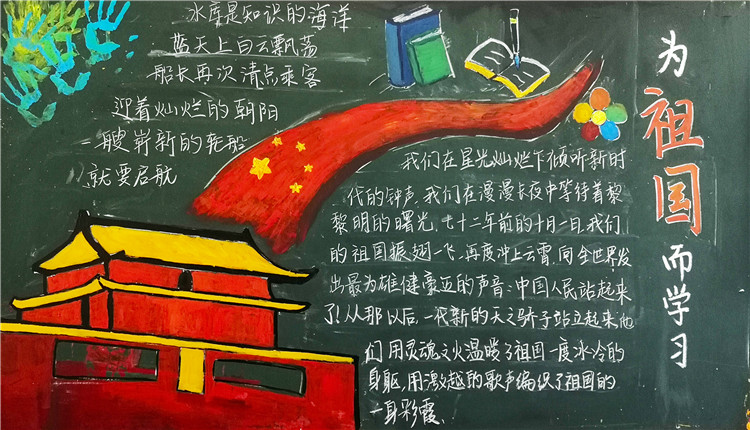 水库是知识的海洋
蓝天上白云飘荡
船长再次清点乘客
迎着灿烂的朝阳
一艘崭新的轮船
就要启航
为祖国而学习
我们在星光灿烂下倾听新时
代的钟声,我们在漫漫长夜中等待着黎
黎明的曙光,七十二年前的十月一日,我们
的祖国振翅一飞、再度冲上云霄,向全世界发
出最为雄健豪迈的声音:中国人民站起来
了!从那以后,一代新的天之骄子站立起来,他
们用灵魂之火温暖了祖国一度冰冷的
身躯,用激越的歌声编织了祖国的
一身彩霞、